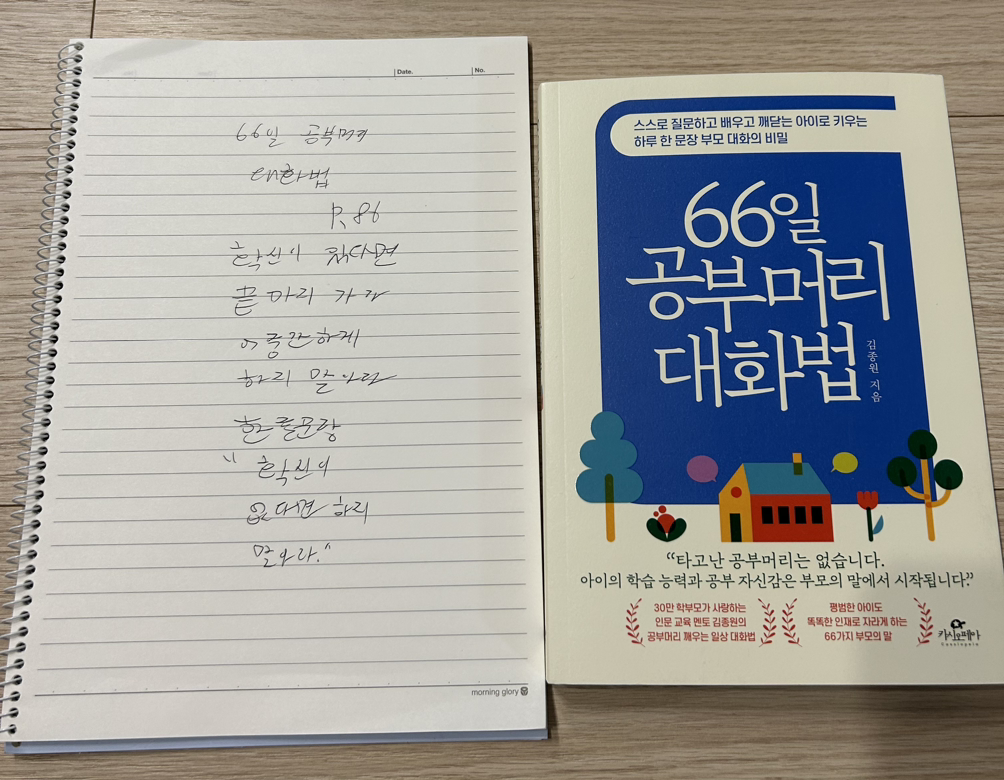 Date.
No.
66일 공부머리
대화법
P. 86
확신이 찼다면
끝까지 가라
어중간하게
하지 말아라
한줄문장
"확신이
없다면 하지
말아라."
morning glory
스스로 질문하고 배우고 깨닫는 아이로 키우는
하루 한 문장 부모 대화의 비밀
66일
공부머리
대화법
김종원 지음
“타고난 공부머리는 없습니다.
아이의 학습 능력과 공부 자신감은 부모의 말에서 시작됩니다.”
30만 학부모가 사랑하는
인문 교육 멘토 김종원의
공부머리 깨우는 일상 대화법
평범한 아이도
똑똑한 인재로 자라게 하는
66가지 부모의 말
카시오페아
Cassiopeia